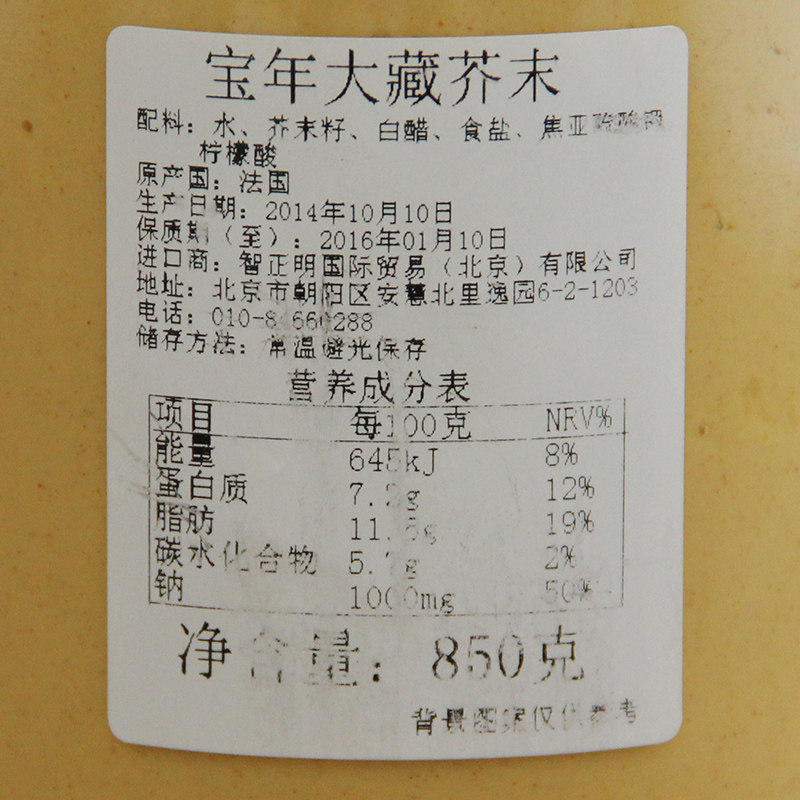 宝年大藏芥末
配料：水、芥末籽、白醋、食盐、焦亚硫酸钾
柠檬酸
原产国：法国
生产日期：2014年10月10日
保质期（至）：2016年01月10日
进口商：智正明国际贸易（北京）有限公司
地址：北京市朝阳区安慧北里逸园6-2-1203
电话：
储存方法：常温避光保存
营养成分表
项目 每100克 NRV%
能量 645kJ 8%
蛋白质 7.2g 12%
脂肪 19%
碳水化合物 2%
钠 1000mg 50%
净含量：850克
背景图案仅供参考